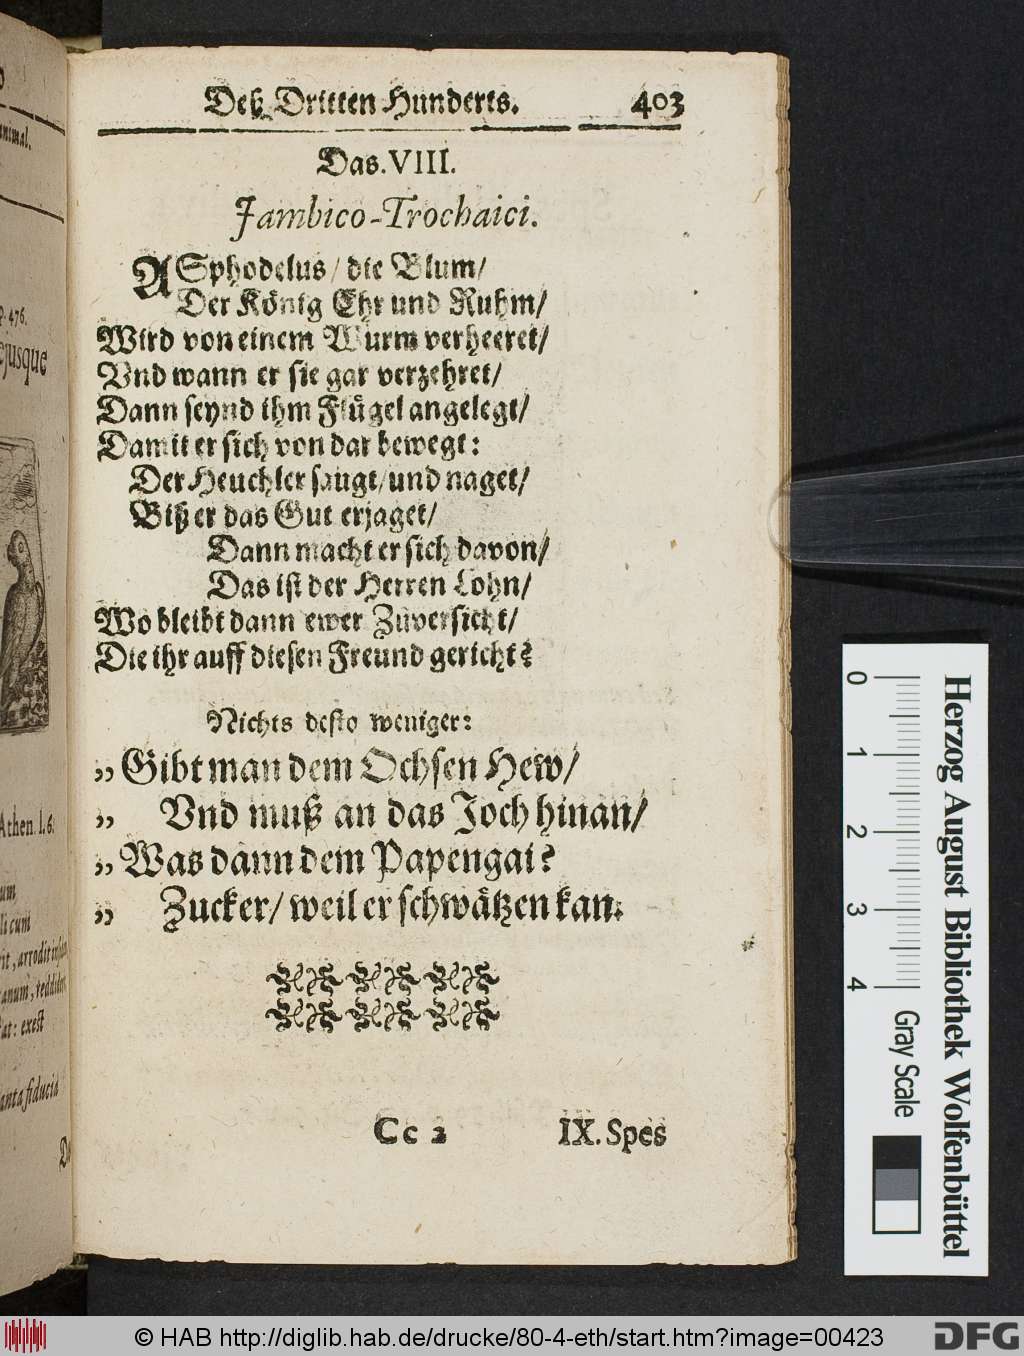 Deß Dritten Hunderts. 403
Das. VIII.
Jambico-Trochaici.
ASphodelus / die Blum /
Der König Ehr und Ruhm /
Wird von einem Wurm verheeret /
Vnd wann er sie gar verzehret /
Dann seynd ihm Flügel angelegt /
Damit er sich von dar bewegt:
Der Heuchler saugt / und naget /
Biß er das Gut erjaget /
Dann macht er sich davon /
Das ist der Herren Lohn /
Wo bleibt dann ewer Zuversicht /
Die ihr auff diesen Freund gericht?
Nichts desto weniger:
„ Gibt man dem Ochsen Hew /
„ Vnd muß an das Joch hinan /
„ Was dann dem Papengai?
„ Zucker / weil er schwätzen kan.
Cc 2 IX. Spes
animal.
p. 476.
ejusque
Athen. l. 6.
um
li cum
rit, arrodit
anum, reddider
at: exest
anta fiducia
0 1 2 3 4
Gray Scale
Herzog August Bibliothek Wolfenbüttel
© HAB http://diglib.hab.de/drucke/80-4-eth/start.htm?image=00423
DFG